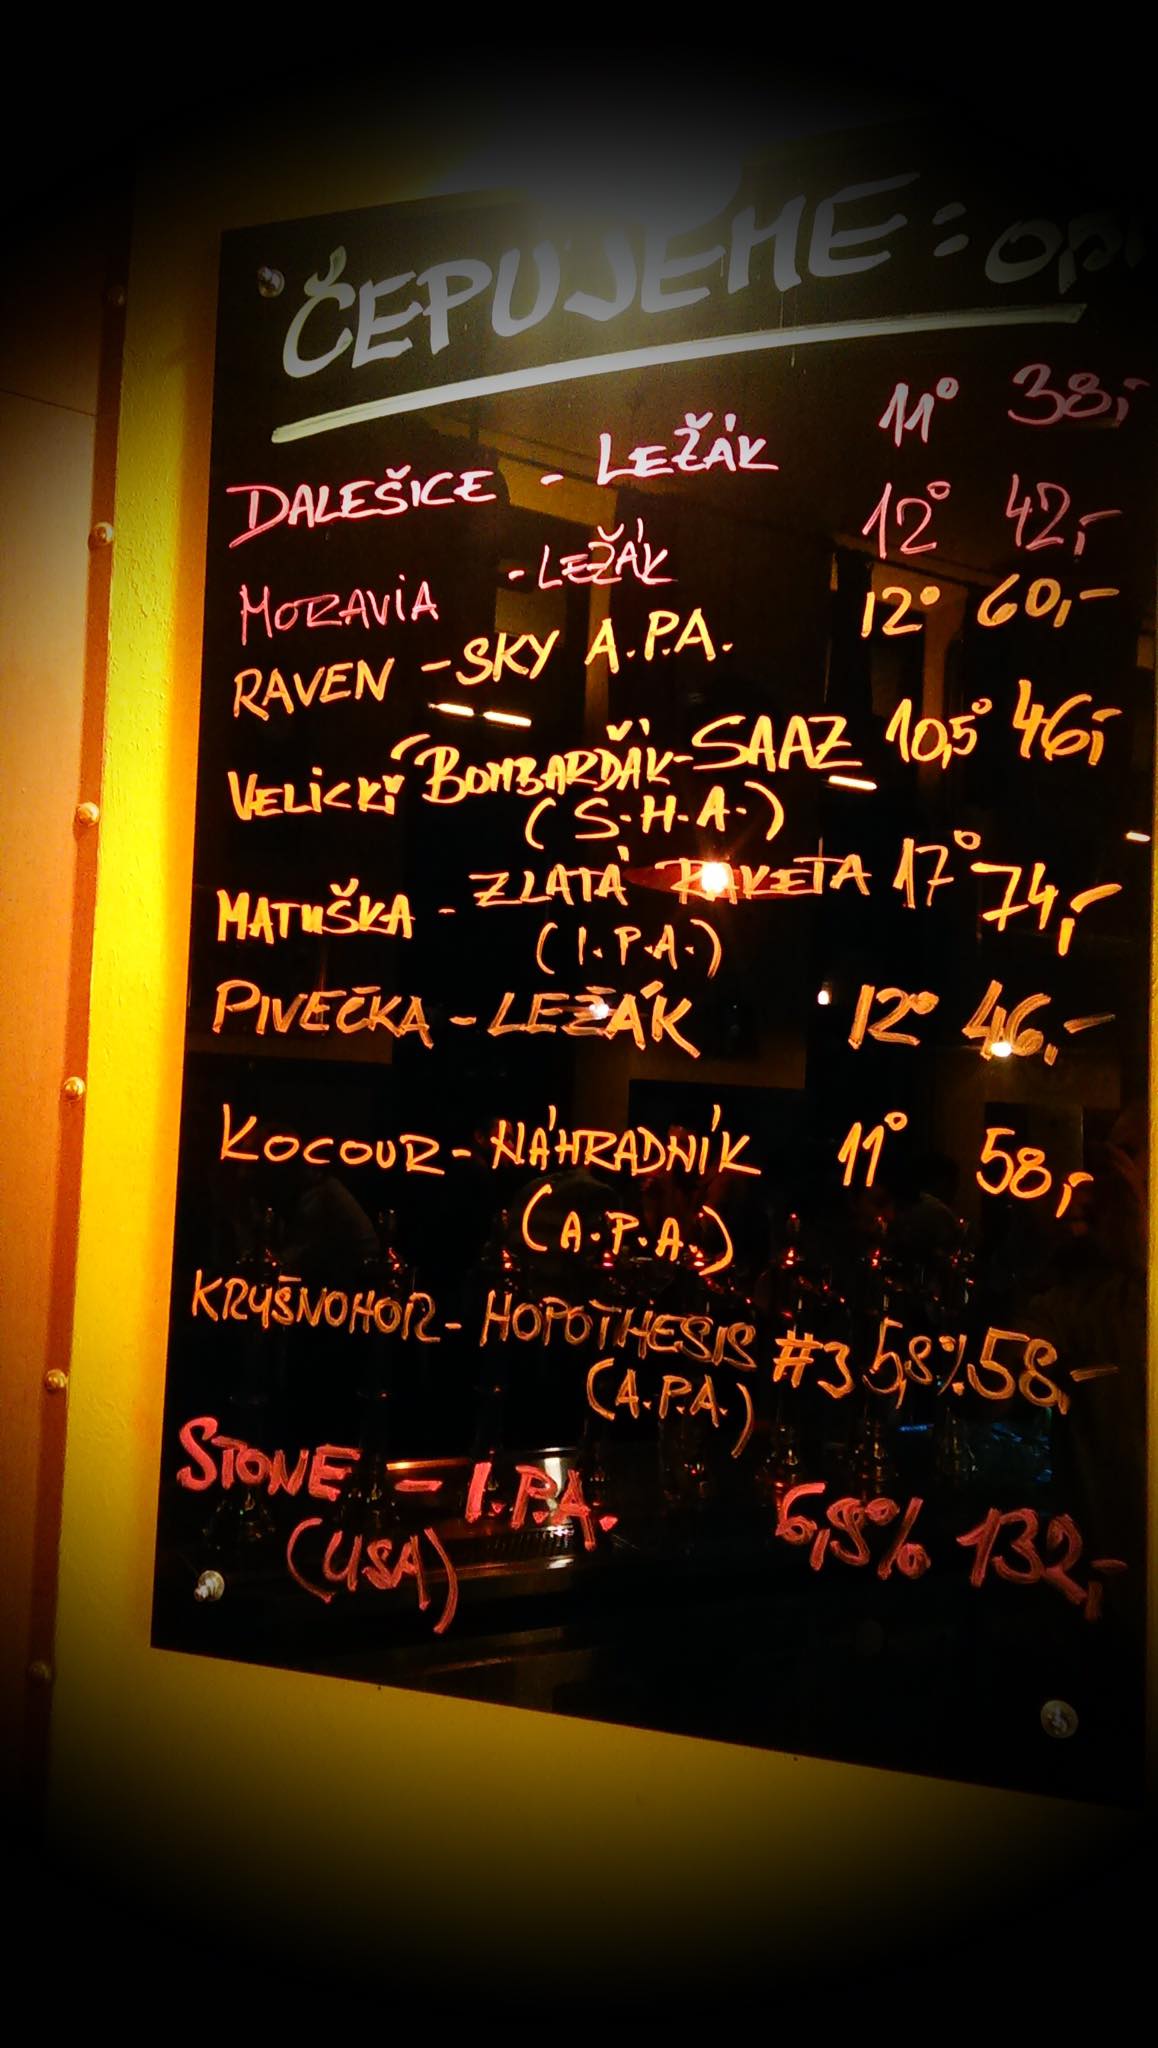 ČEPUJEME:
DALEŠICE - LEŽÁK 11° 38,-
MORAVIA - LEŽÁK 12° 42,-
RAVEN - SKY A.P.A. 12° 60,-
VELICKÝ BOMBARĎÁK - SAAZ 10,5° 46,-
(S.H.A.)
MATUŠKA - ZLATÁ RAKETA 17° 74,-
(I.P.A.)
PIVEČKA - LEŽÁK 12° 46,-
KOCOUR - NÁHRADNÍK 11° 58,-
(A.P.A.)
KRUŠNOHOR - HOPOTHESIS #3 5,8% 58,-
(A.P.A.)
STONE - I.P.A. 6,9% 132,-
(USA)